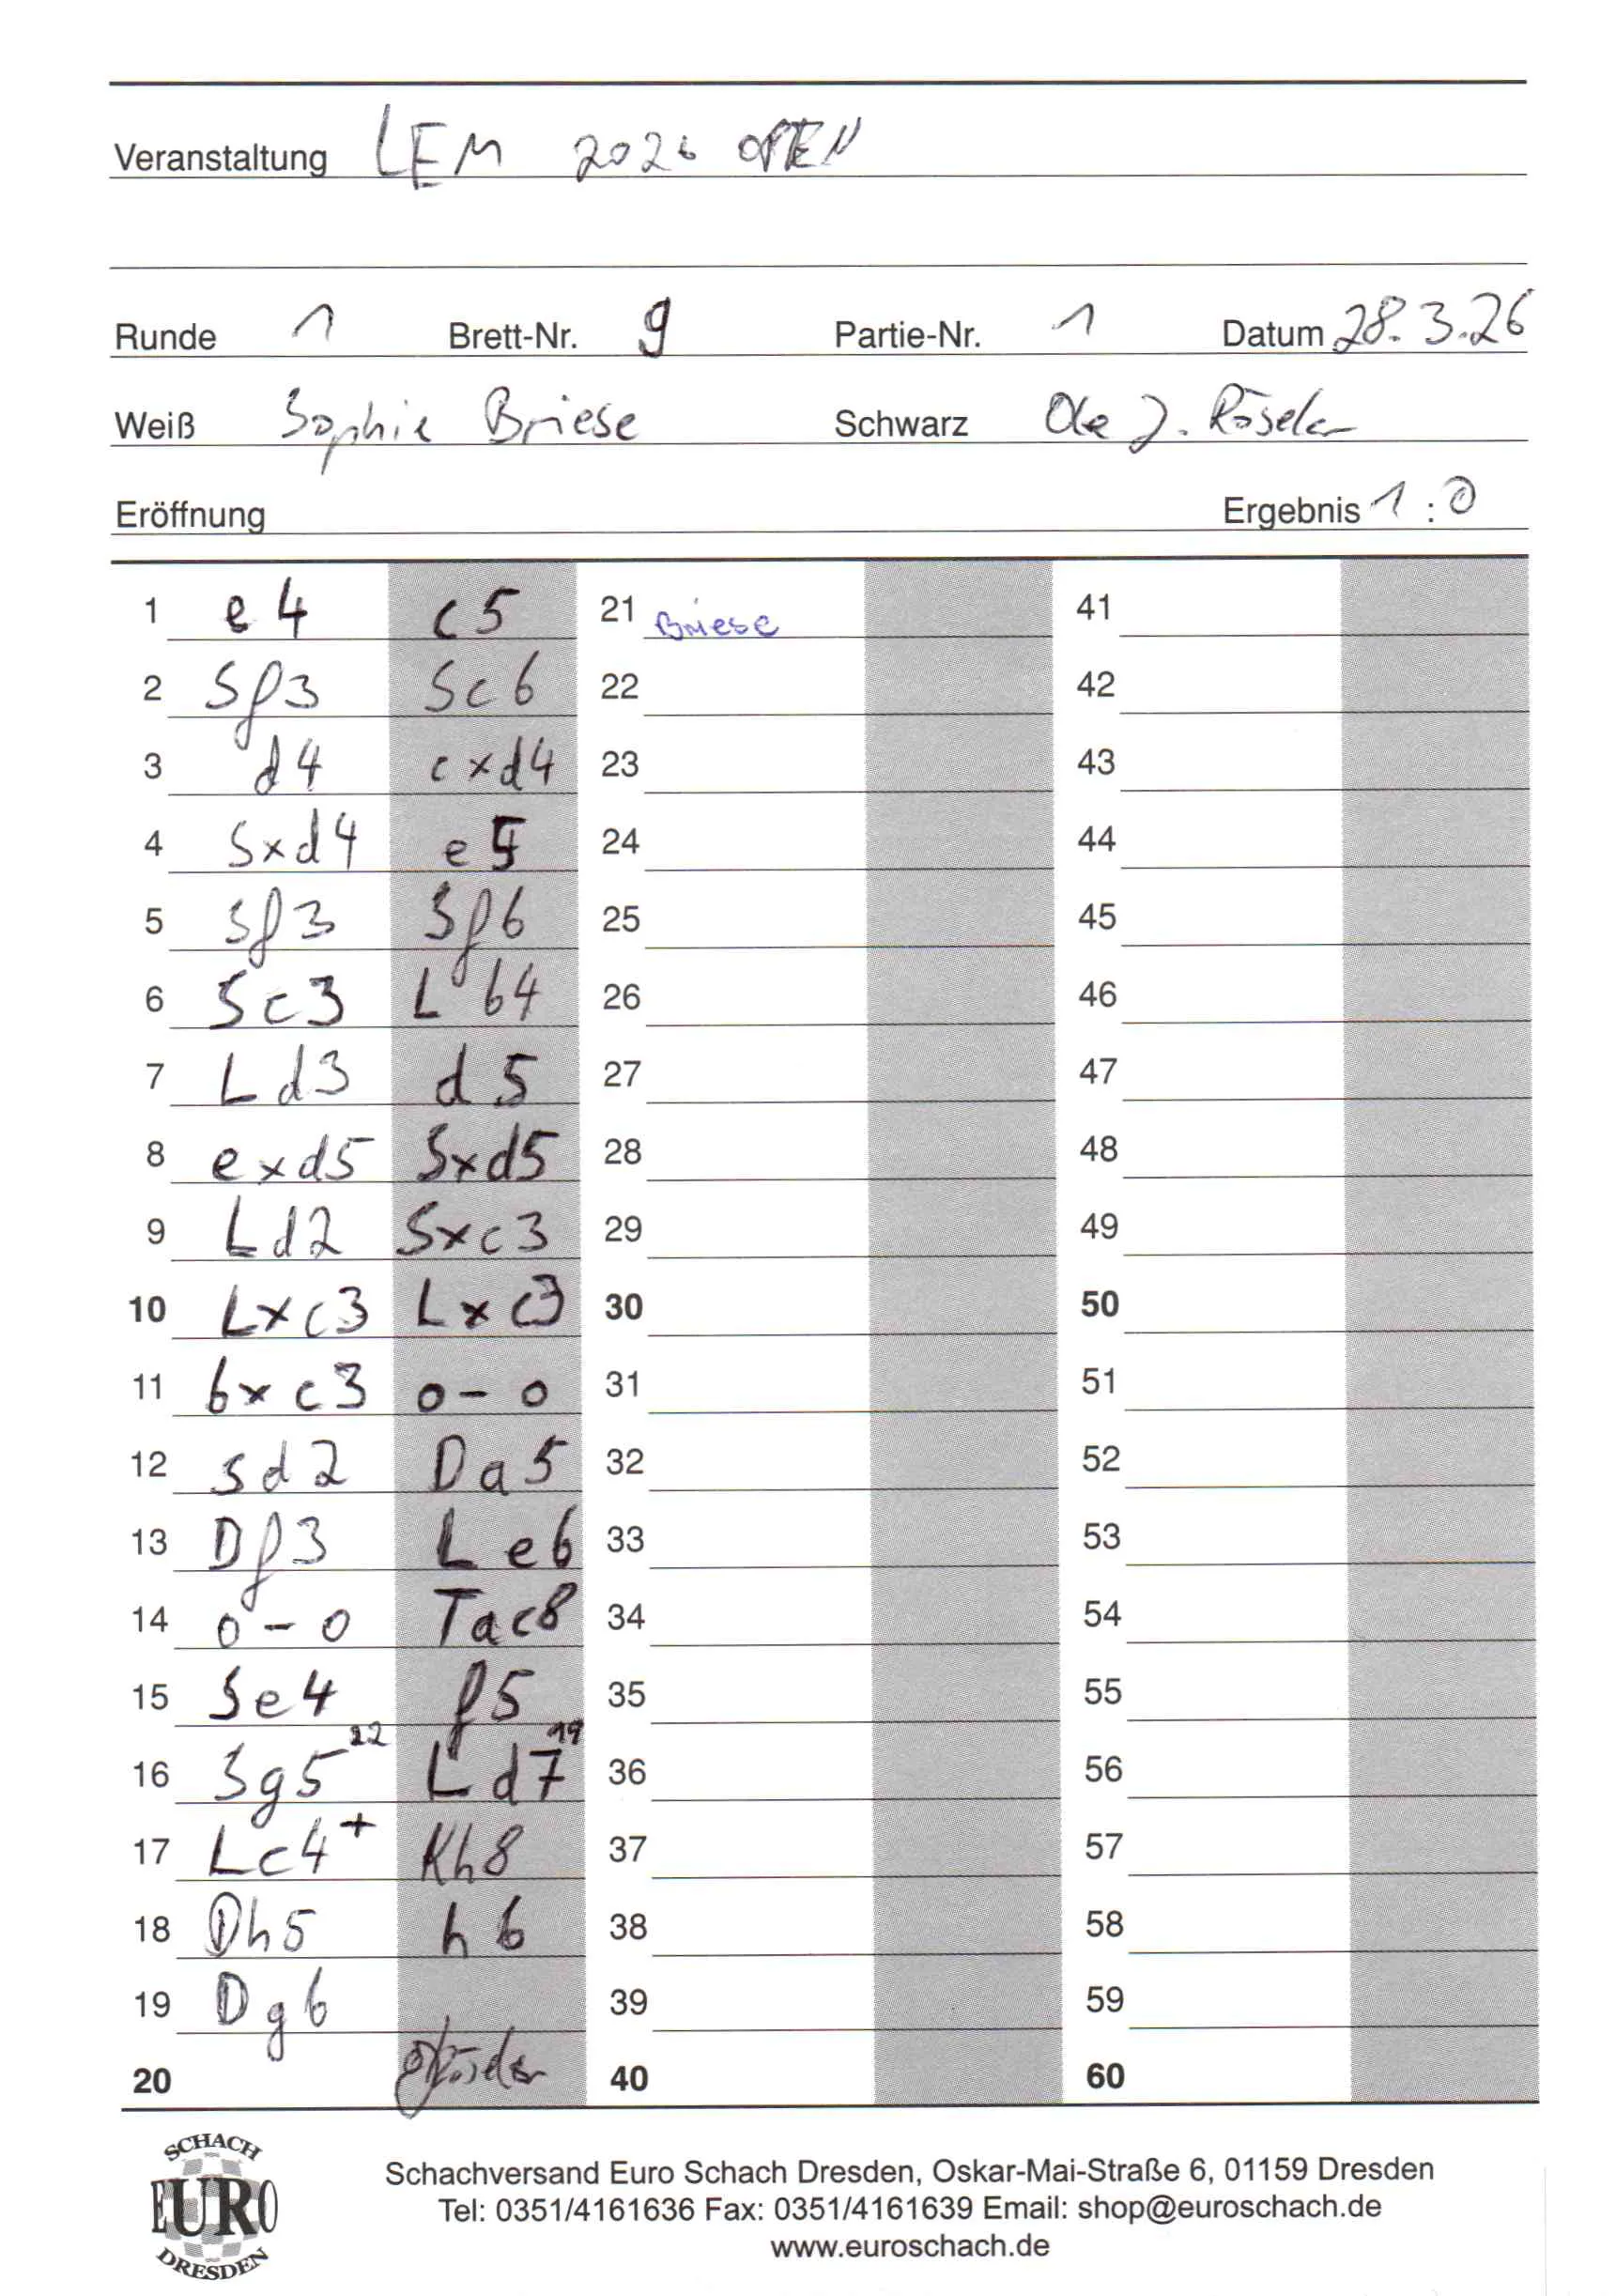 Veranstaltung LEM 2026 OPEN
Runde 1 Brett-Nr. 9 Partie-Nr. 1 Datum 28.3.26
Weiß Sophie Briese Schwarz Ole J. Röseler
Eröffnung Ergebnis 1:0
1 e4 c5 21 Briese 41
2 Sf3 Sc6 22 42
3 d4 cxd4 23 43
4 Sxd4 e5 24 44
5 Sf3 Sf6 25 45
6 Sc3 Lb4 26 46
7 Ld3 d5 27 47
8 exd5 Sxd5 28 48
9 Ld2 Sxc3 29 49
10 Lxc3 Lxc3 30 50
11 bxc3 0-0 31 51
12 Sd2 Da5 32 52
13 Df3 Le6 33 53
14 0-0 Tac8 34 54
15 Se4 f5 35 55
16 Sg5 22 Ld7 19 36 56
17 Lc4+ Kh8 37 57
18 Dh5 h6 38 58
19 Dg6 39 59
20 Röseler 40 60
SCHACH
EURO
DRESDEN
Schachversand Euro Schach Dresden, Oskar-Mai-Straße 6, 01159 Dresden
Tel: 0351/4161636 Fax: 0351/4161639 Email: shop@euroschach.de
www.euroschach.de